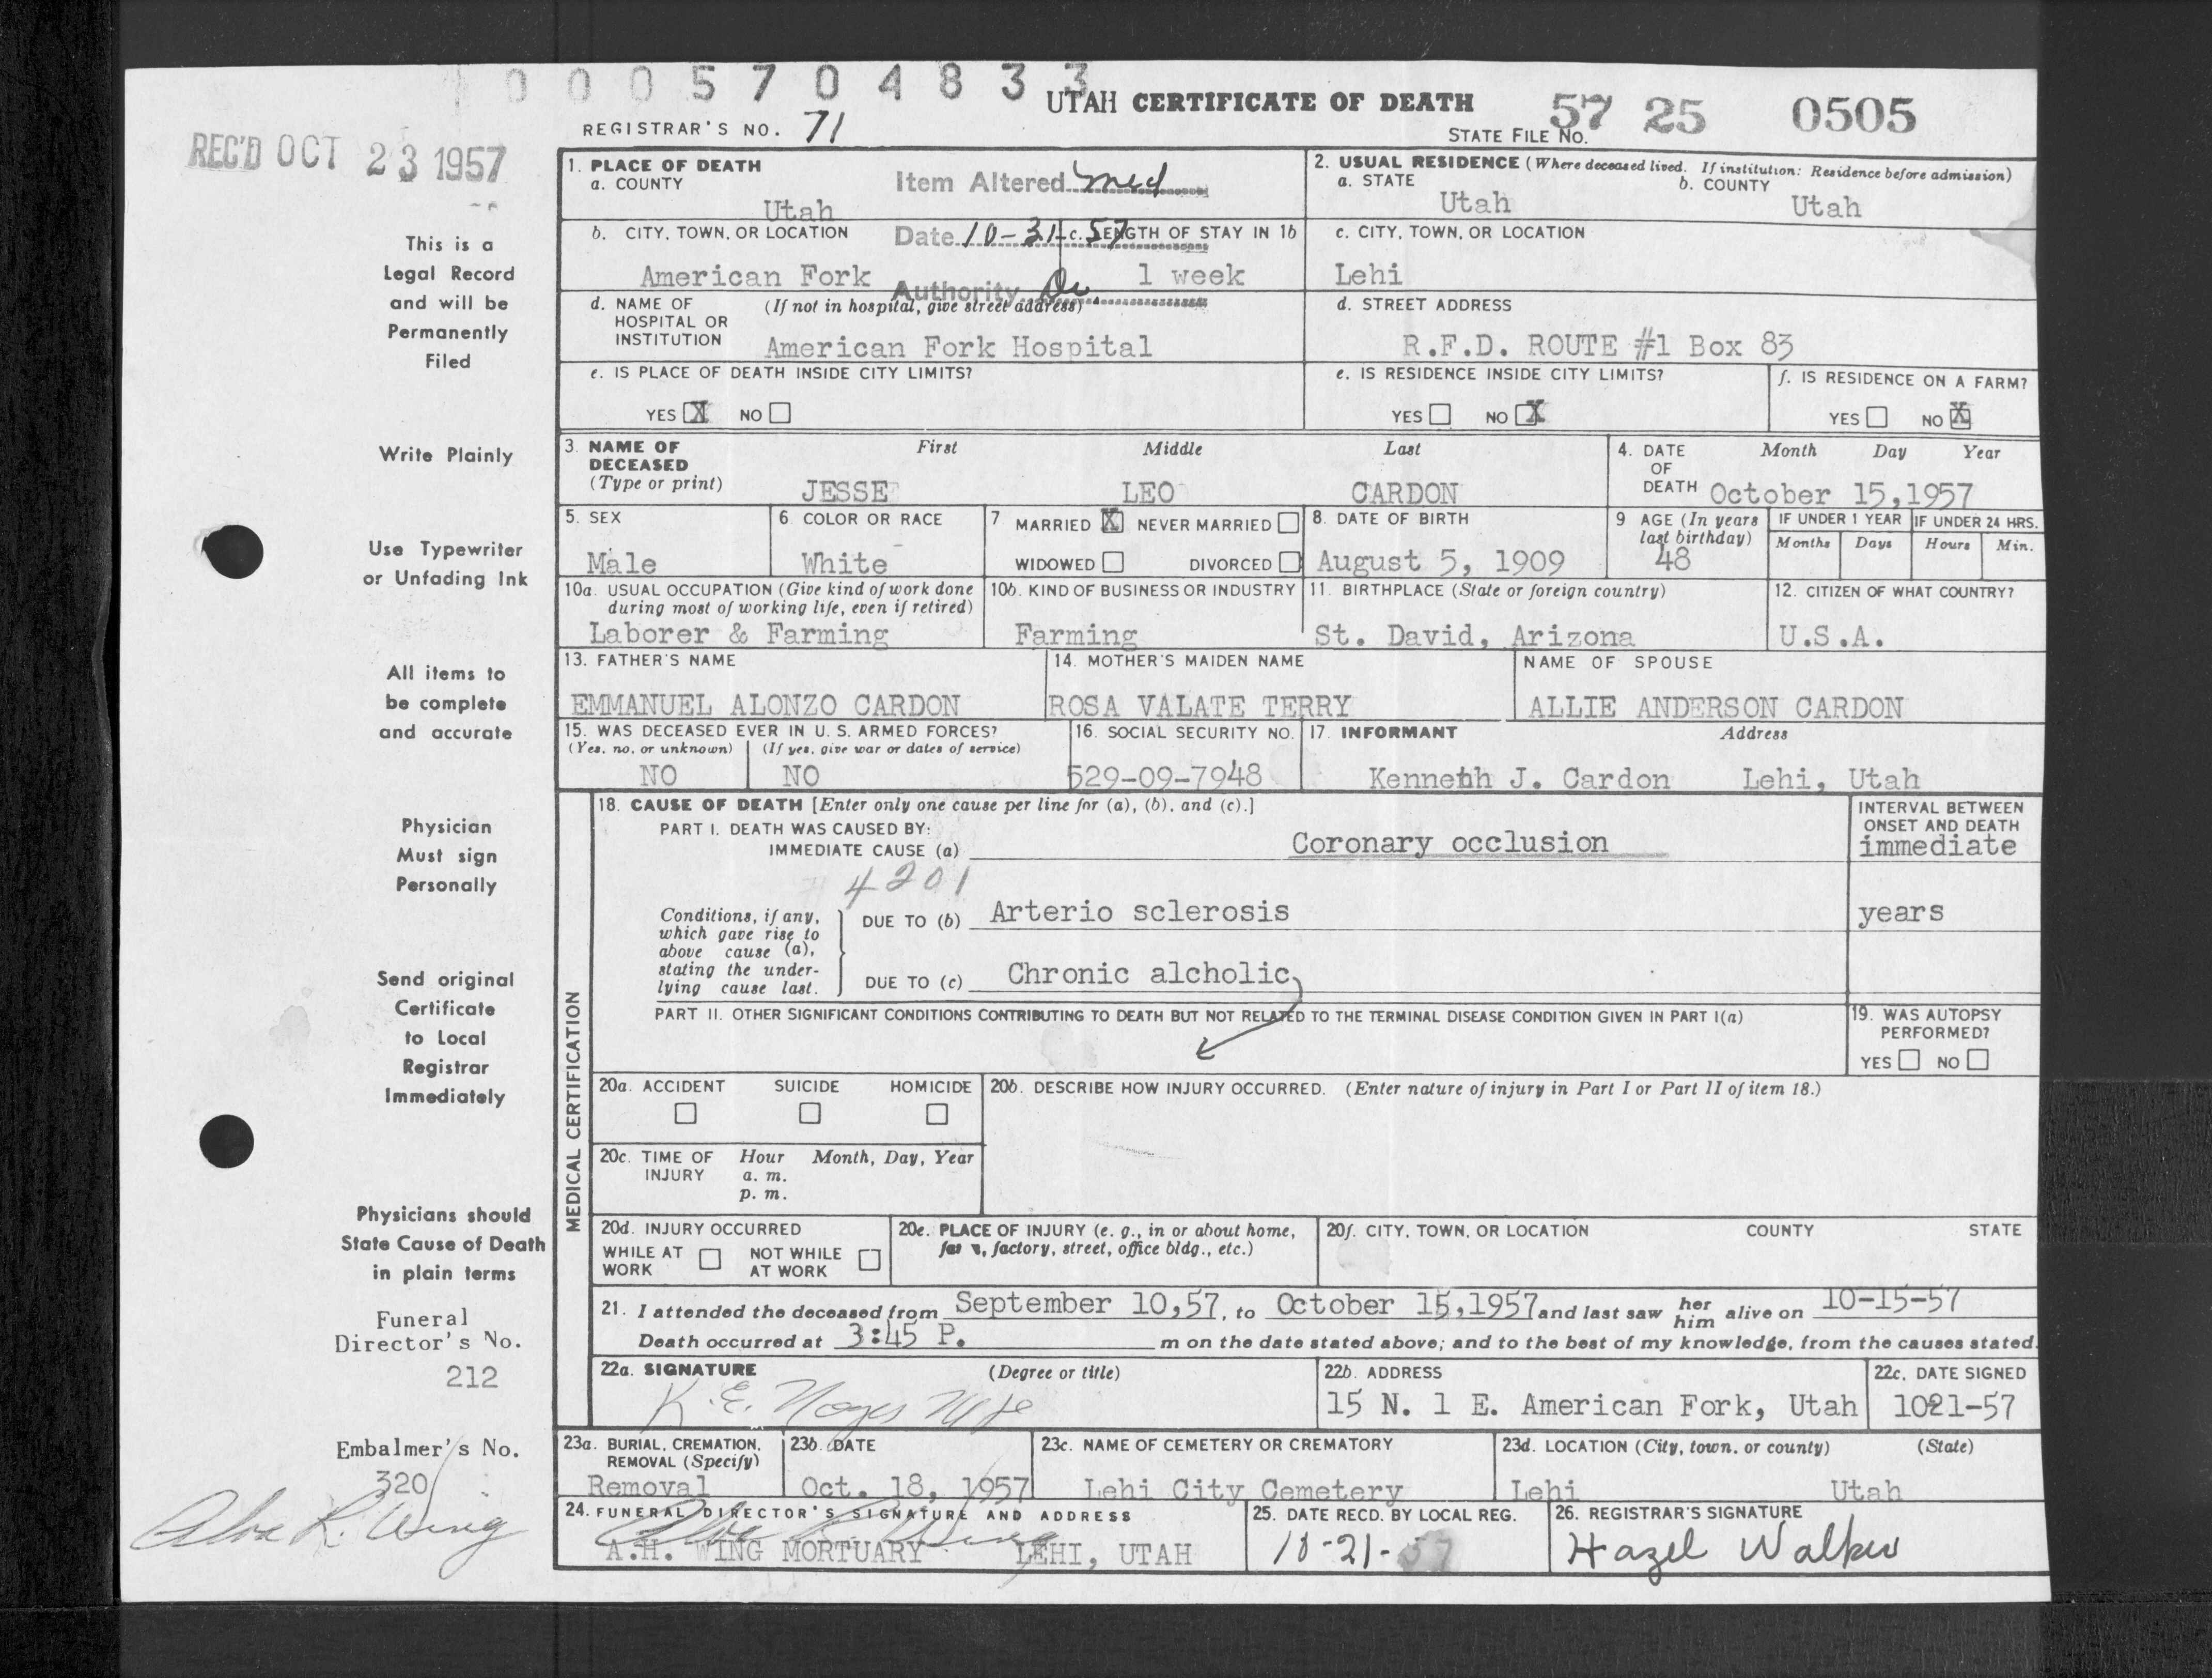 0005704833
UTAH CERTIFICATE OF DEATH
REGISTRAR'S NO. 71
STATE FILE NO. 57 25 0505
REC'D OCT 23 1957
This is a
Legal Record
and will be
Permanently
Filed
Write Plainly
Use Typewriter
or Unfading Ink
All items to
be complete
and accurate
Physician
Must sign
Personally
Send original
Certificate
to Local
Registrar
Immediately
Physicians should
State Cause of Death
in plain terms
Funeral
Director's No.
212
Embalmer's No.
320
Alva R. Wing
1. PLACE OF DEATH
a. COUNTY
Utah
Item Altered med
Date 10-31-57
Authority Dr
b. CITY, TOWN, OR LOCATION
American Fork
c. LENGTH OF STAY IN 1b
1 week
d. NAME OF HOSPITAL OR INSTITUTION (If not in hospital, give street address)
American Fork Hospital
e. IS PLACE OF DEATH INSIDE CITY LIMITS?
YES X NO
2. USUAL RESIDENCE (Where deceased lived. If institution: Residence before admission)
a. STATE
Utah
b. COUNTY
Utah
c. CITY, TOWN, OR LOCATION
Lehi
d. STREET ADDRESS
R.F.D. ROUTE #1 Box 83
e. IS RESIDENCE INSIDE CITY LIMITS?
YES NO X
f. IS RESIDENCE ON A FARM?
YES NO X
3. NAME OF DECEASED (Type or print)
First Middle Last
JESSE LEO CARDON
4. DATE OF DEATH Month Day Year
October 15,1957
5. SEX
Male
6 COLOR OR RACE
White
7 MARRIED X NEVER MARRIED
WIDOWED DIVORCED
8. DATE OF BIRTH
August 5, 1909
9 AGE (In years last birthday)
48
IF UNDER 1 YEAR IF UNDER 24 HRS.
Months Days Hours Min.
10a. USUAL OCCUPATION (Give kind of work done during most of working life, even if retired)
Laborer & Farming
10b. KIND OF BUSINESS OR INDUSTRY
Farming
11. BIRTHPLACE (State or foreign country)
St. David, Arizona
12. CITIZEN OF WHAT COUNTRY?
U.S.A.
13. FATHER'S NAME
EMMANUEL ALONZO CARDON
14. MOTHER'S MAIDEN NAME
ROSA VALATE TERRY
NAME OF SPOUSE
ALLIE ANDERSON CARDON
15. WAS DECEASED EVER IN U. S. ARMED FORCES?
(Yes, no, or unknown) (If yes, give war or dates of service)
NO NO
16. SOCIAL SECURITY NO.
529-09-7948
17. INFORMANT Address
Kenneth J. Cardon Lehi, Utah
MEDICAL CERTIFICATION
18. CAUSE OF DEATH [Enter only one cause per line for (a), (b), and (c).]
PART I. DEATH WAS CAUSED BY:
IMMEDIATE CAUSE (a) Coronary occlusion
INTERVAL BETWEEN
ONSET AND DEATH
immediate
4201
Conditions, if any,
which gave rise to
above cause (a),
stating the under-
lying cause last.
DUE TO (b) Arterio sclerosis
years
DUE TO (c) Chronic alcholic
PART II. OTHER SIGNIFICANT CONDITIONS CONTRIBUTING TO DEATH BUT NOT RELATED TO THE TERMINAL DISEASE CONDITION GIVEN IN PART I(a)
19. WAS AUTOPSY
PERFORMED?
YES NO
20a. ACCIDENT SUICIDE HOMICIDE
20b. DESCRIBE HOW INJURY OCCURRED. (Enter nature of injury in Part I or Part II of item 18.)
20c. TIME OF INJURY Hour Month, Day, Year
a. m.
p. m.
20d. INJURY OCCURRED
WHILE AT WORK NOT WHILE AT WORK
20e. PLACE OF INJURY (e. g., in or about home,
factory, street, office bldg., etc.)
20f. CITY, TOWN, OR LOCATION COUNTY STATE
21. I attended the deceased from September 10,57, to October 15,1957 and last saw her him alive on 10-15-57
Death occurred at 3:45 P. m on the date stated above; and to the best of my knowledge, from the causes stated.
22a. SIGNATURE (Degree or title)
K. E. Noyes
22b. ADDRESS
15 N. 1 E. American Fork, Utah
22c. DATE SIGNED
1021-57
23a. BURIAL, CREMATION,
REMOVAL (Specify)
Removal
23b. DATE
Oct. 18, 1957
23c. NAME OF CEMETERY OR CREMATORY
Lehi City Cemetery
23d. LOCATION (City, town, or county) (State)
Lehi Utah
24. FUNERAL DIRECTOR'S SIGNATURE AND ADDRESS
Alva R. Wing
A.H. WING MORTUARY LEHI, UTAH
25. DATE RECD. BY LOCAL REG.
10-21-57
26. REGISTRAR'S SIGNATURE
Hazel Walker